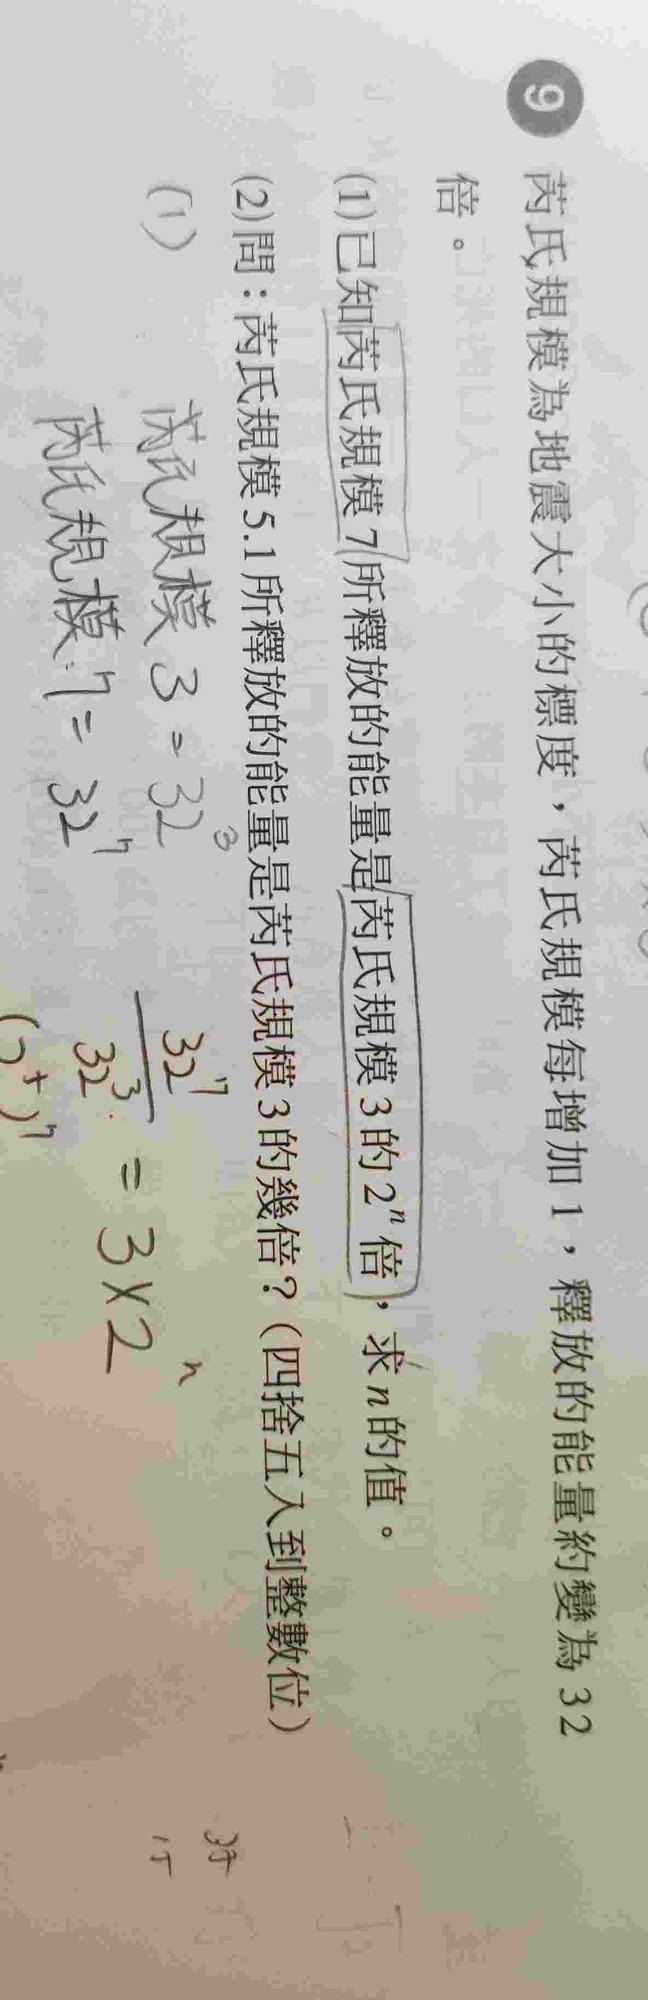 9 芮氏規模為地震大小的標度，芮氏規模每增加1，釋放的能量約變為32
倍。
(1)已知芮氏規模7所釋放的能量是芮氏規模3的2ⁿ倍，求n的值。
(2)問：芮氏規模5.1所釋放的能量是芮氏規模3的幾倍？（四捨五入到整數位）
(1) 芮氏規模3=32³
芮氏規模7=32⁷
32⁷/32³ = 3×2ⁿ